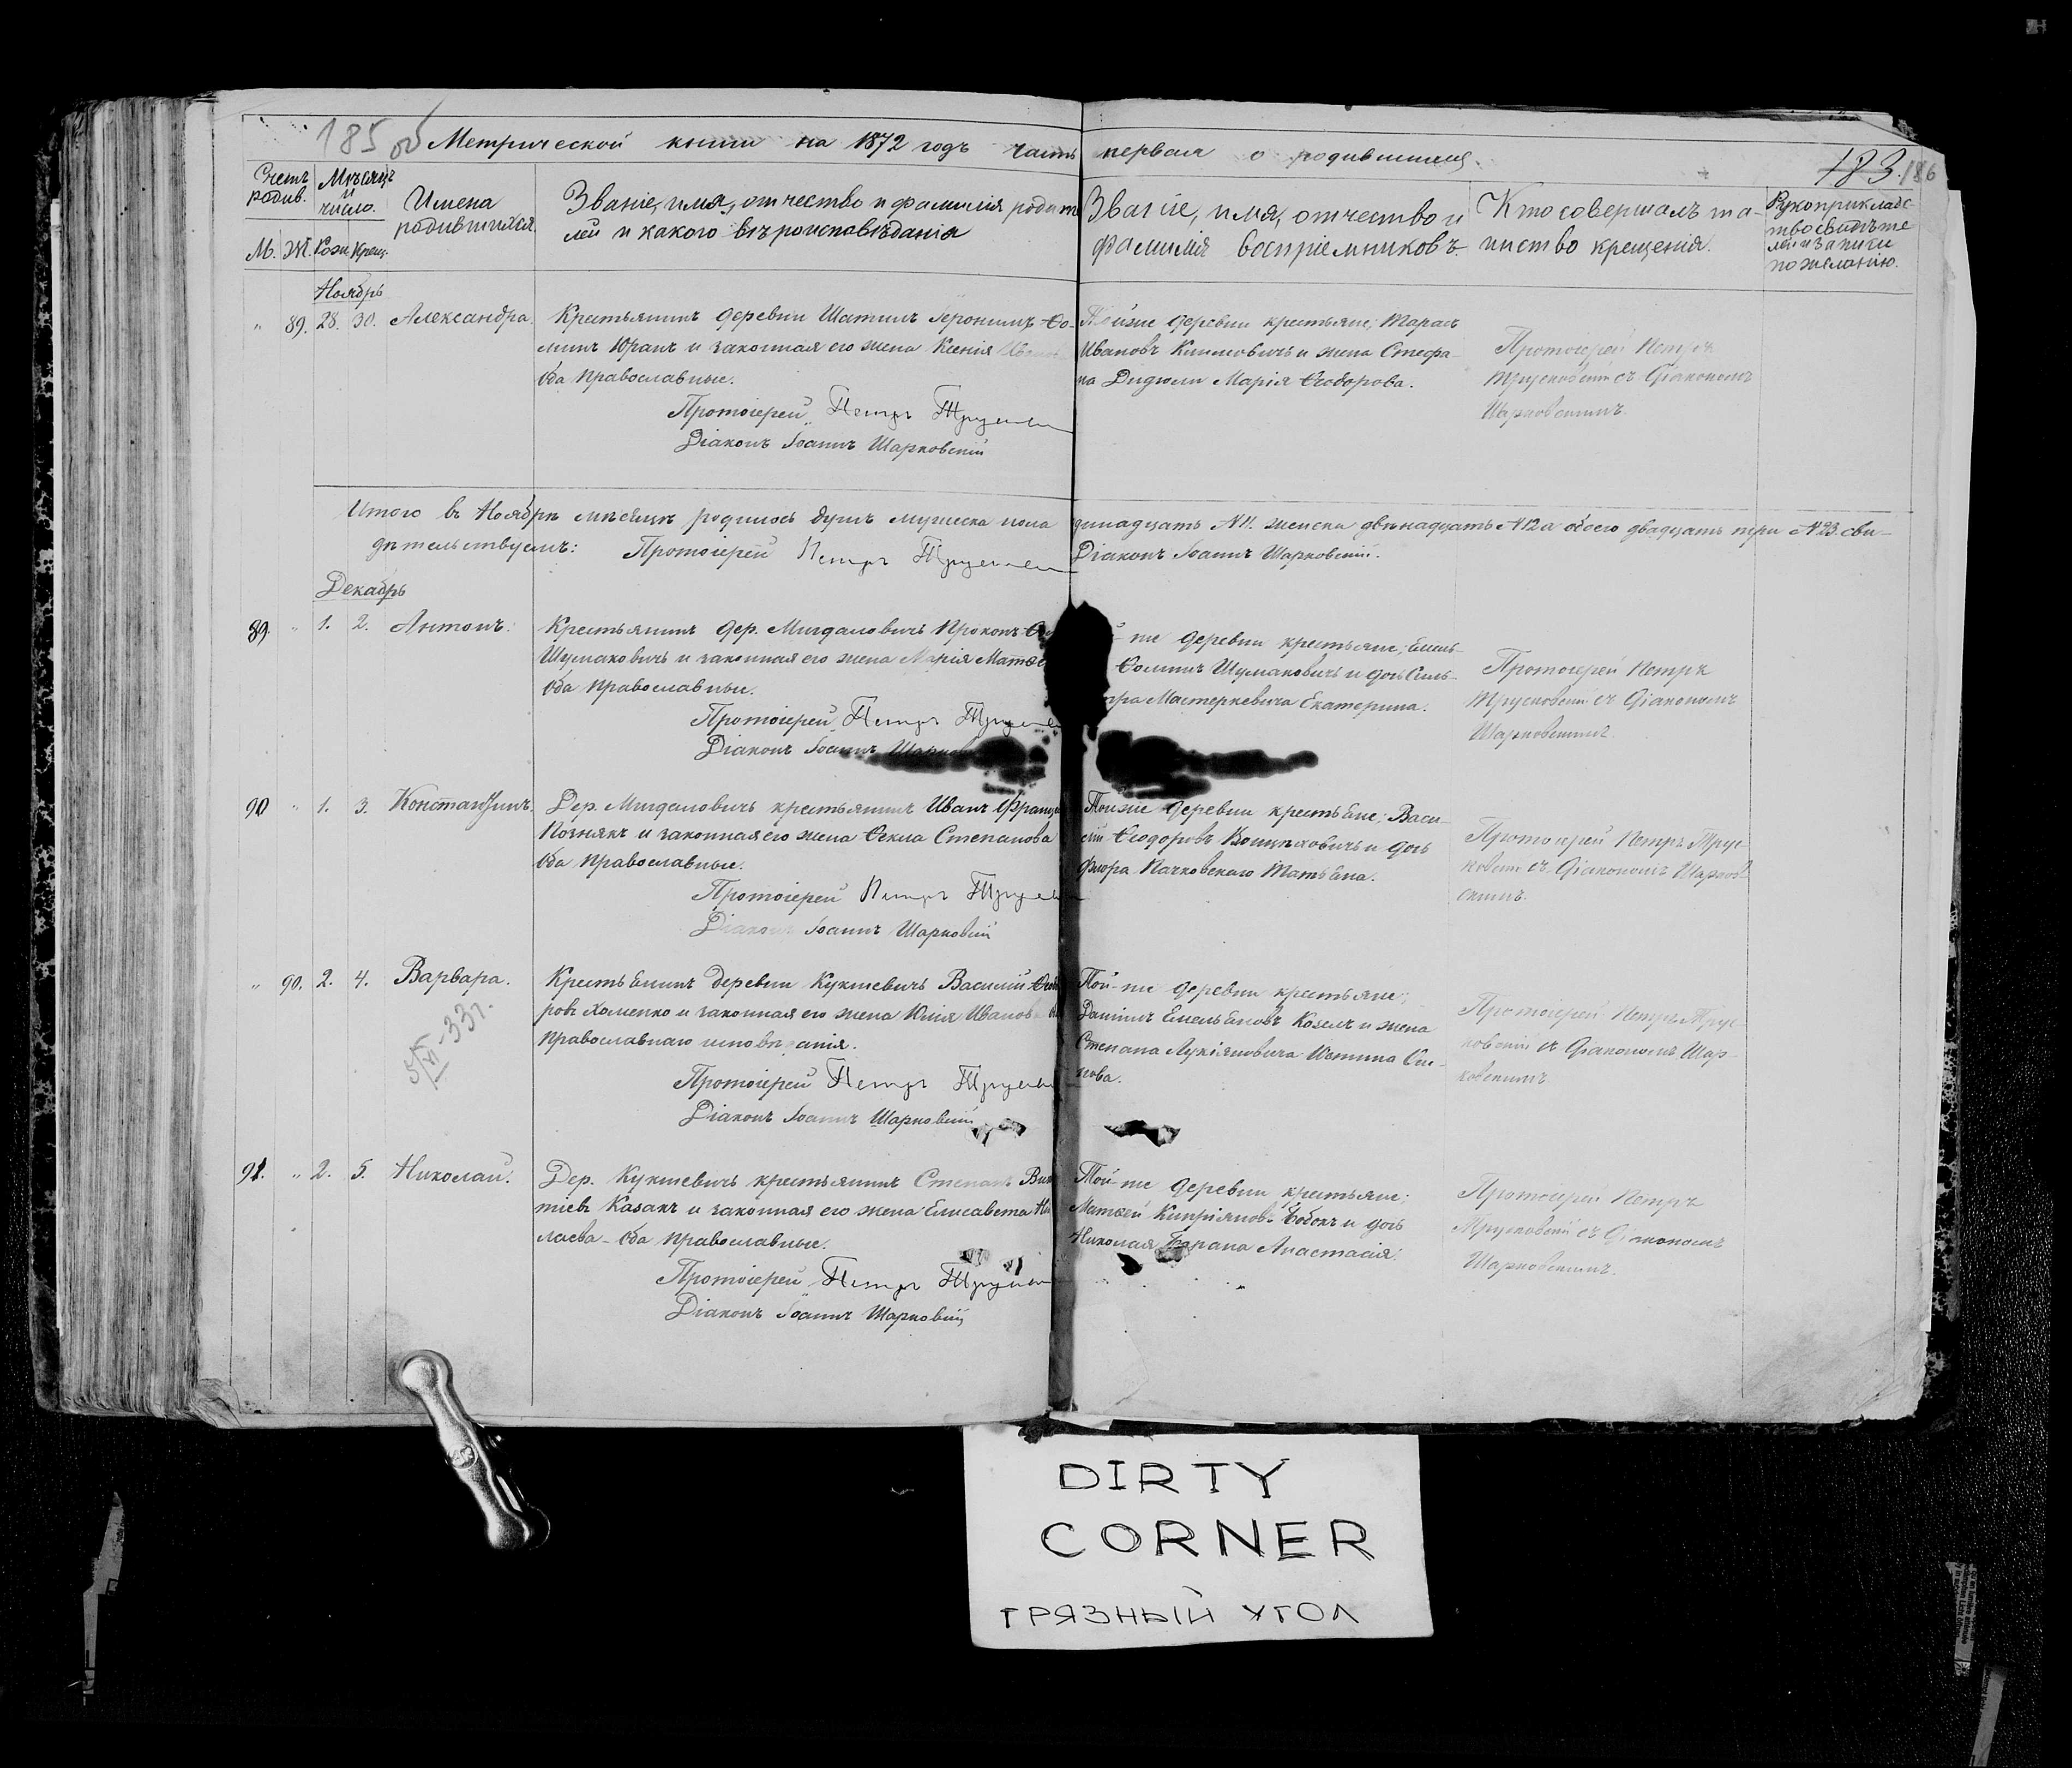 185 об
Метрической книги на 1872 годъ часть первая о родившихся.
183. 186
Счетъ родив.
Мѣсяцъ и число.
Имена родившихся.
Званіе, имя, отчество и фамилія родите
лей и какого вѣроисповѣданія
Званіе, имя, отчество и
фамилія воспріемниковъ.
Кто совершалъ та-
инство крещенія.
Рукоприкладс
тво свидѣте
лей записи
по желанію.
М. Ж. Рожд. Крещ.
Ноябрь
" 89. 28. 30. Александра.
Крестьянинъ деревни Шатилъ Іеронимъ Ѳо-
минъ Юранъ и законная его жена Ксенія
Оба православные.
Протоіерей Петръ
Діаконъ Іоаннъ Шарковскій
Тойже деревни крестьяне; Тарасъ
Ивановъ Климовичъ и жена Стефа-
на Дидюли Марія Ѳеодорова.
Протоіерей Петръ
Трусковскій съ Діакономъ
Шарковскимъ.
Итого въ Ноябрѣ мѣсяцѣ родилось душъ мужеска пола динадцать №11. женска двѣнадцать №12 а обоего двадцать три №23. сви-
дѣтельствуемъ: Протоіерей Петръ Діаконъ Іоаннъ Шарковскій.
Декабрь
89. " 1. 2. Антонъ.
Крестьянинъ дер. Мигдаловичъ Прокопъ
Шумаковичъ и законная его жена Марія
Оба православные.
Протоіерей Петръ
Діаконъ Іоаннъ
же деревни крестьяне; Емель-
Ѳоминъ Шумаковичъ и дочь Силь-
Мастеркевича Екатерина.
Протоіерей Петръ
Трусковскій съ Діакономъ
Шарковскимъ.
90 " 1. 3. Константинъ.
Дер. Мигдаловичъ крестьянинъ Иванъ
Познякъ и законная его жена Ѳекла Степанова
Оба православные.
Протоіерей Петръ
Діаконъ Іоаннъ Шарковскій
Тойже деревни крестьяне; Васи-
лій Ѳеодоровъ и дочь
Флора Пачковскаго Татьяна.
Протоіерей Петръ Трус-
ковскій съ Діакономъ Шарков-
скимъ.
" 90. 2. 4. Варвара.
Крестьянинъ деревни Кукшевичъ Василій
ровъ Хоменко и законная его жена Юлія
православнаго исповѣданія.
Протоіерей Петръ
Діаконъ Іоаннъ Шарковскій
Той-же деревни крестьяне;
Даніилъ Емельяновъ Козелъ и жена
Степана Лукіяновича
Протоіерей Петръ Трус-
ковскій съ Діакономъ Шар-
ковскимъ.
5/VI-33г.
91. " 2. 5. Николай.
Дер. Кукшевичъ крестьянинъ Степанъ
тіевъ Казакъ и законная его жена Елисавета Ни
лаева - Оба православные.
Протоіерей Петръ
Діаконъ Іоаннъ Шарковскій
Той-же деревни крестьяне;
Матѳей Кипріяновъ и дочь
Николая Барана Анастасія.
Протоіерей Петръ
Трусковскій съ Діакономъ
Шарковскимъ.
DIRTY
CORNER
ГРЯЗНЫЙ УГОЛ